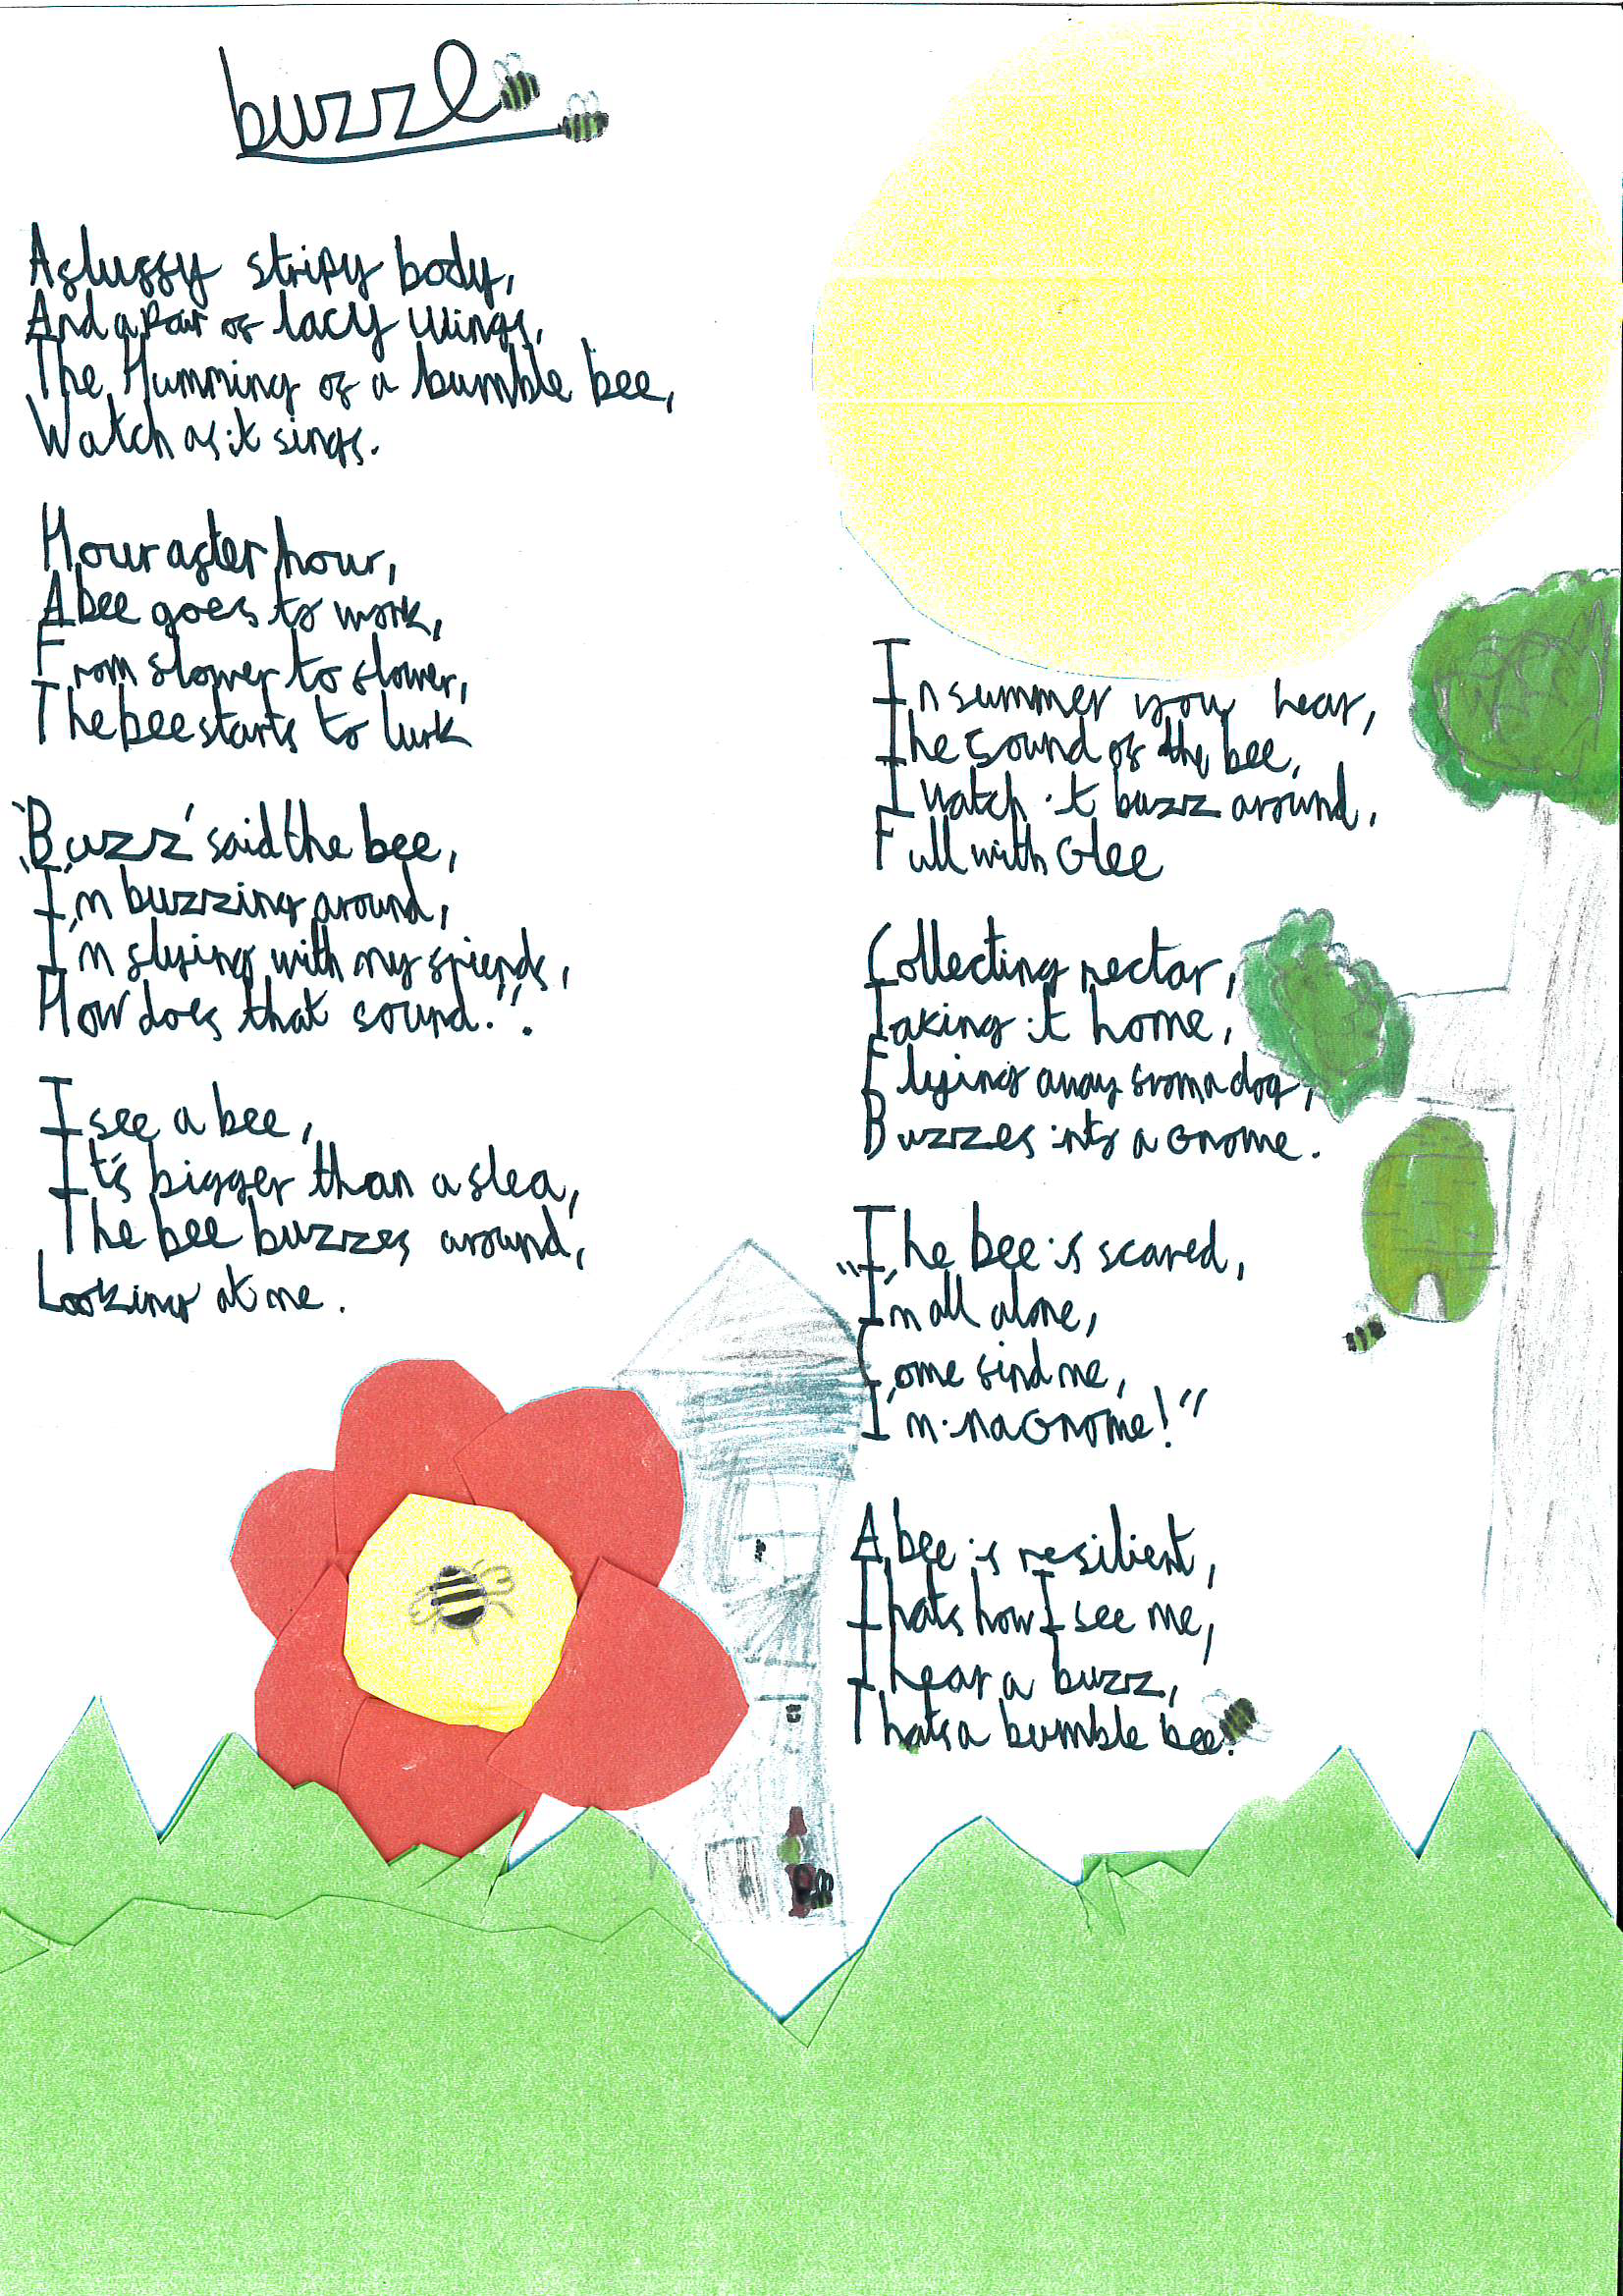 buzzz
A fluffy stripy body,
And a pair of lacy wings,
The Humming of a bumble bee,
Watch as it sings.
Hour after hour,
A bee goes to work,
From flower to flower,
The bee starts to lurk
'Buzz' said the bee,
"I'm buzzing around,
I'm flying with my friends,
How does that sound.".
I see a bee,
It's bigger than a flea,
The bee buzzes around,
Looking at me.
In summer you hear,
The Sound of the bee,
I watch it buzz around,
Full with Glee
Collecting nectar,
Taking it home,
Flying away from a dog,
Buzzes into a Gnome.
The bee is scared,
"I'm all alone,
Come find me,
I'm in a Gnome!"
A bee is resilient,
Thats how I see me,
I hear a buzz,
Thats a bumble bee.